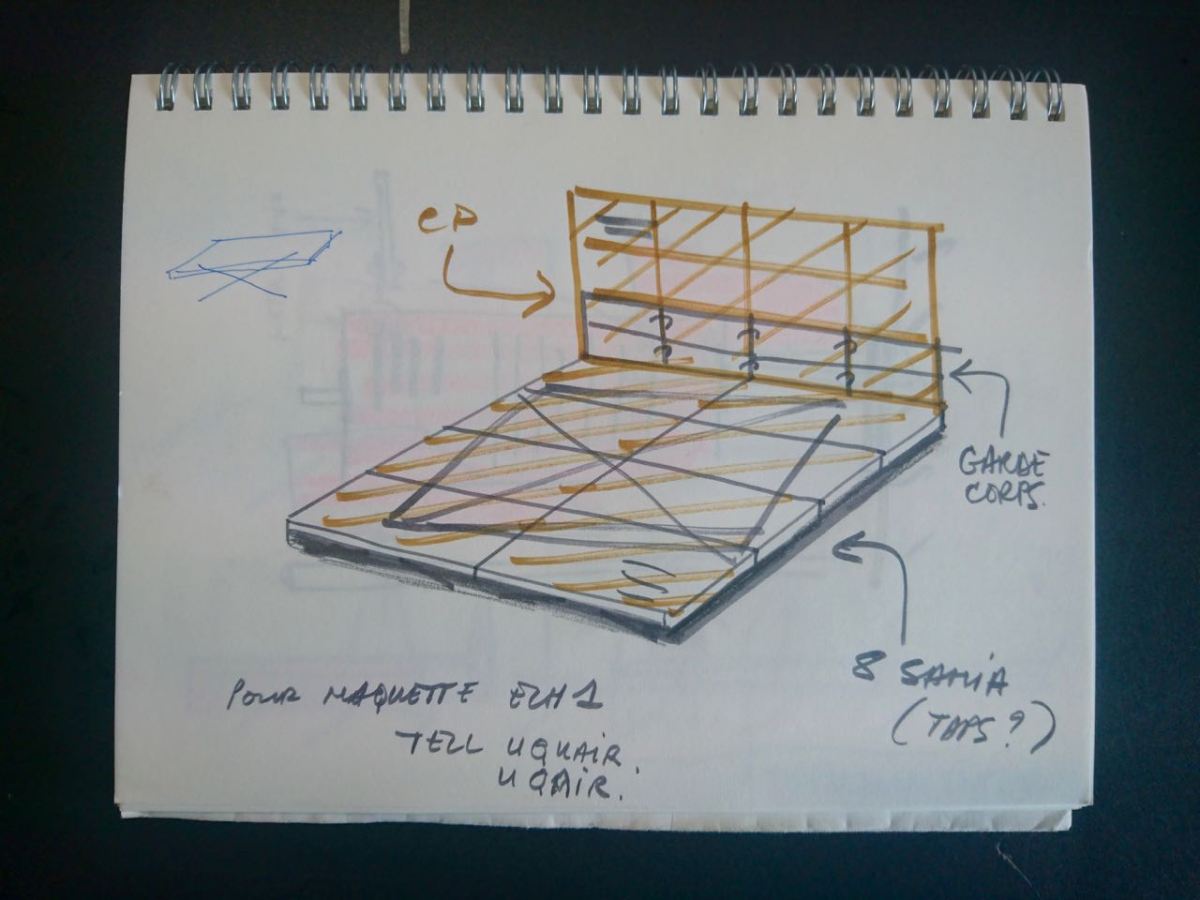 CP
GARDE
CORPS.
8 SAMIA
(TAPS?)
POUR MAQUETTE ECH 1
TELL UQUAIR.
UQAIR.